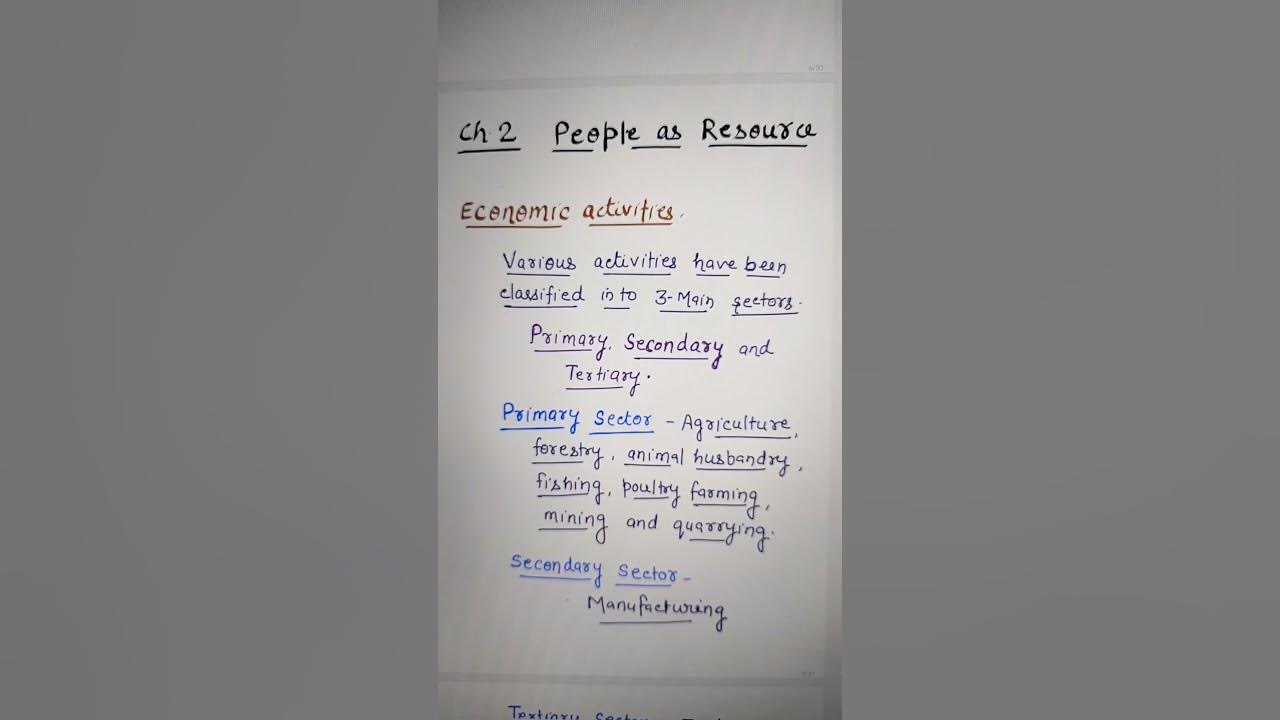 Ch 2 People as Resource
Economic activities.
Various activities have been
classified in to 3-Main sectors.
Primary, Secondary and
Tertiary.
Primary Sector - Agriculture,
forestry, animal husbandry,
fishing, poultry farming,
mining and quarrying.
Secondary Sector -
Manufacturing
Tertiary Sector